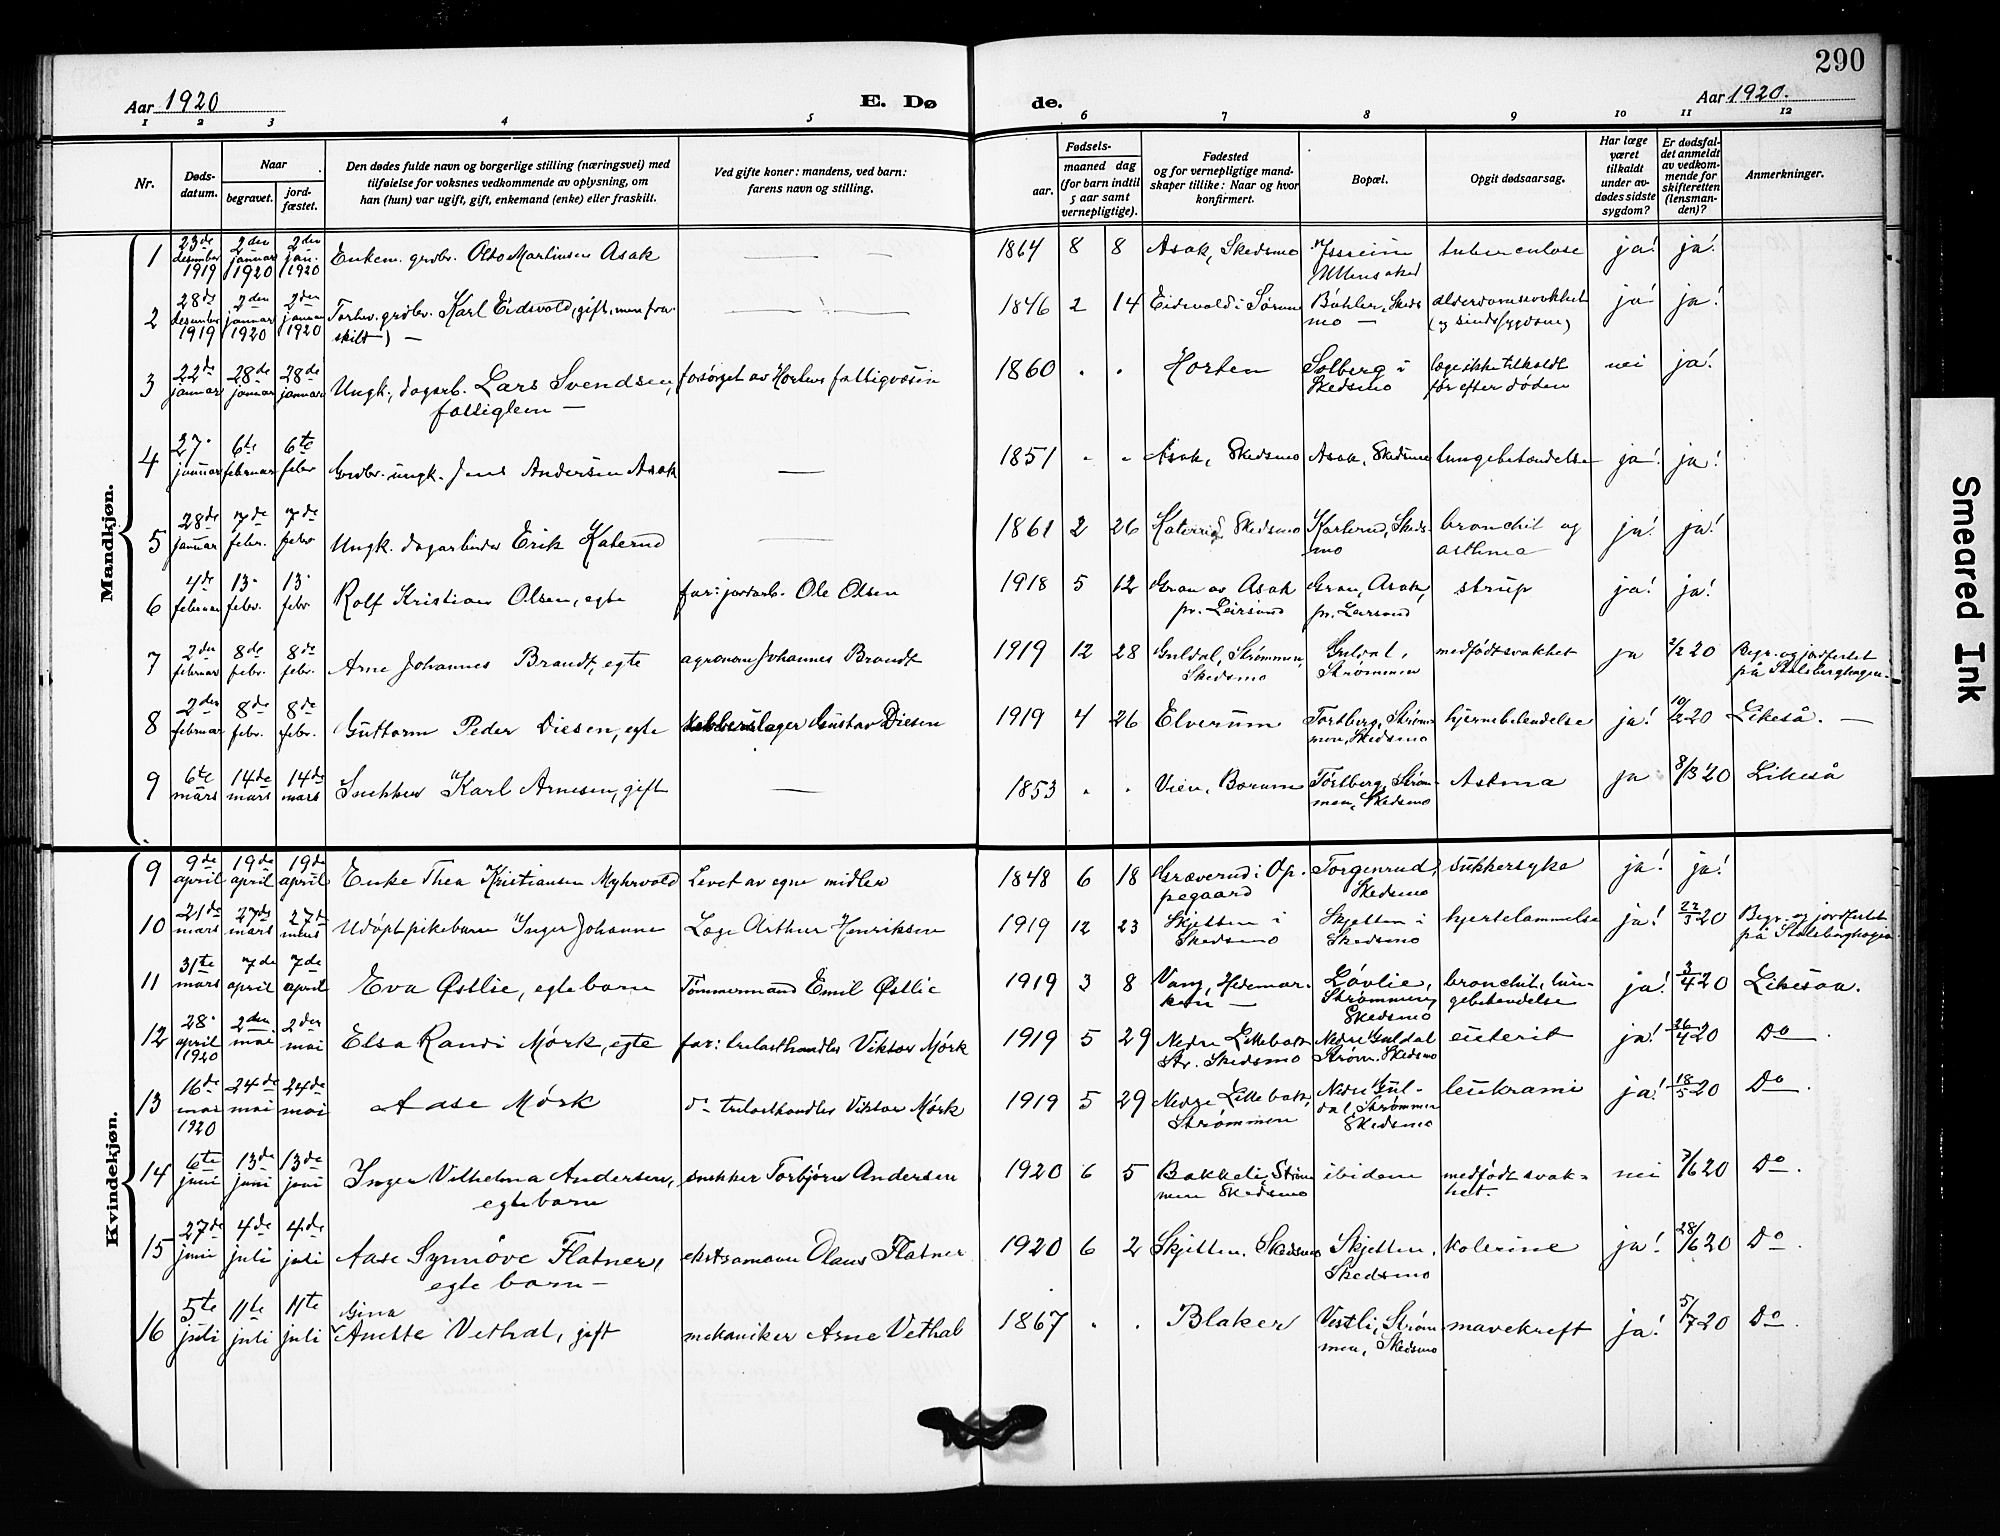 290
Aar 1920
E. Dø
de.
Aar 1920.
1 2 3 4 5 6 7 8 9 10 11 12
Nr.
Døds-
datum.
Naar
begravet.
jord-
fæstet.
Den dødes fulde navn og borgerlige stilling (næringsvei) med
tilføielse for voksnes vedkommende av oplysning, om
han (hun) var ugift, gift, enkemand (enke) eller fraskilt.
Ved gifte koner: mandens, ved barn:
farens navn og stilling.
Fødsels-
aar.
maaned dag
(for barn indtil
5 aar samt
vernepligtige).
Fødested
og for vernepligtige mand-
skaper tillike: Naar og hvor
konfirmert.
Bopæl.
Opgit dødsaarsag.
Har læge
været
tilkaldt
under av-
dødes sidste
sygdom?
Er dødsfal-
det anmeldt
av vedkom-
mende for
skifteretten
(lensman-
den)?
Anmerkninger.
Mandkjøn.
1 23de desember 1919 2den januar 1920 2den jan. 1920 Enkem. grdbr. Olto Martinsen Asak — — 1864 8 8 Asak, Skedsmo Jssreim Ullensaker tuberculose ja! ja!
2 28de desember 1919 2den januar 1920 2den januar 1920 Forhv. grdbr. Karl Eidsvold, gift, men fra-
skilt) — — — 1846 2 14 Eidsvold i Sørum Bøhler, Skeds
mo — alderdomssvakhet
(og sindssygdom) ja! ja!
3 22de januar 28de januar 28de januar Ungk., dagarb. Lars Svendsen,
fattiglem — forsørget av Hortens fattigvæsen 1860 " " Horten Solberg i
Skedsmo læge ikke tilkaldt
før efter døden nei ja!
4 27. januar 6te februar 6te febr Grdbr. ungk. Jens Andersen Asak — 1851 " " Asak, Skedsmo Asak, Skedsmo lungebetændelse ja! ja!
5 28de januar 7de febr. 7de febr Ungk. dagarbeider Erik Katerud — 1861 2 26 Katerud Skedsmo Katerud, Skeds-
mo bronchit og
asthma ja! ja!
6 4de februar 13. febr. 13. febr. Rolf Kristian Olsen, egte far: jordarb. Ole Olsen 1918 5 12 Gran av Asak
pr. Leirsund Gran, Asak,
pr. Leirsund strup ja! ja!
7 2den februar 8de febr. 8de febr. Arne Johannes Brandt, egte agronom Johannes Brandt 1919 12 28 Guldal, Strømmen,
Skedsmo Guldal,
Strømmen medfødt svakhet ja 2/2 20 Begr. og jordfestet
på Stalsberghagen.
8 2den februar 8de febr. 8de febr. Guttorm Peder Diesen, egte kobberslager Gustav Diesen 1919 4 26 Elverum Torsberg, Strøm-
men, Skedsmo hjernebetendelse ja! 10/2 20 Likeså. —
9 6te mars 14de mars 14de mars Snekker Karl Arnesen, gift — 1853 " " Vien, Bærum Torsberg, Strøm-
men, Skedsmo Astma ja 8/3 20 Likeså
Kvindekjøn.
9 9de april 19de april 19de april Enke Thea Kristiansen Myhrvold Levet av egne midler 1848 6 18 Græverud i Op-
pegaard Torgenrud,
Skedsmo sukkersyke ja! ja!
10 21de mars 27de mars 27de mars Udøpt pikebarn Inger Johanne Læge Arthur Henriksen 1919 12 23 Skjetten i
Skedsmo Skjetten i
Skedsmo hjertelammelse ja! 22/3 20 Begr. og jordfestet
på Stalsberghagen
11 31te mars 7de april 7de april Eva Østlie, egte barn Tømmermand Emil Østlie 1919 3 8 Vang, Hedemar-
ken — Løvlie,
Strømmen,
Skedsmo bronchit, lun-
gebetendelse ja! 3/4 20 Likesaa.
12 28. april 1920 2den mai 2den mai Elsa Randi Mørk, egte far: trelasthandler Viktor Mørk 1919 5 29 Nedre Lillebakk
Str. Skedsmo Nedre Guldal
Strøm. Skedsmo enterit ja! 26/4 20 Do.
13 16de mai 1920 24de mai 24de mai Aase Mørk do trelasthandler Viktor Mørk 1919 5 29 Nedre Lillebakk,
Strømmen Nedre Gul-
dal, Strømmen
Skedsmo leukæmi ja! 18/5 20 Do.
14 6te juni 13de juni 13de juni Inger Vilhelma Andersen,
egte barn snekker Torbjørn Andersen 1920 6 5 Bakkeli, Strøm
men Skedsmo ibidem medfødt svak-
het. nei 7/6 20 Do.
15 27de juni 4de juli 4de juli Aase Synnøve Flatner,
egte barn — ekstramann Olaus Flatner 1920 6 2 Skjetten, Skedsmo Skjetten,
Skedsmo kolerine ja! 28/6 20 Do.
16 5te juli 11te juli 11te juli Gina
Anette Vethal, gift mekaniker Arne Vethal 1867 " " Blaker Vestli, Strøm
men, Skedsmo mavekreft ja! 5/7 20 Do.
Smeared Ink